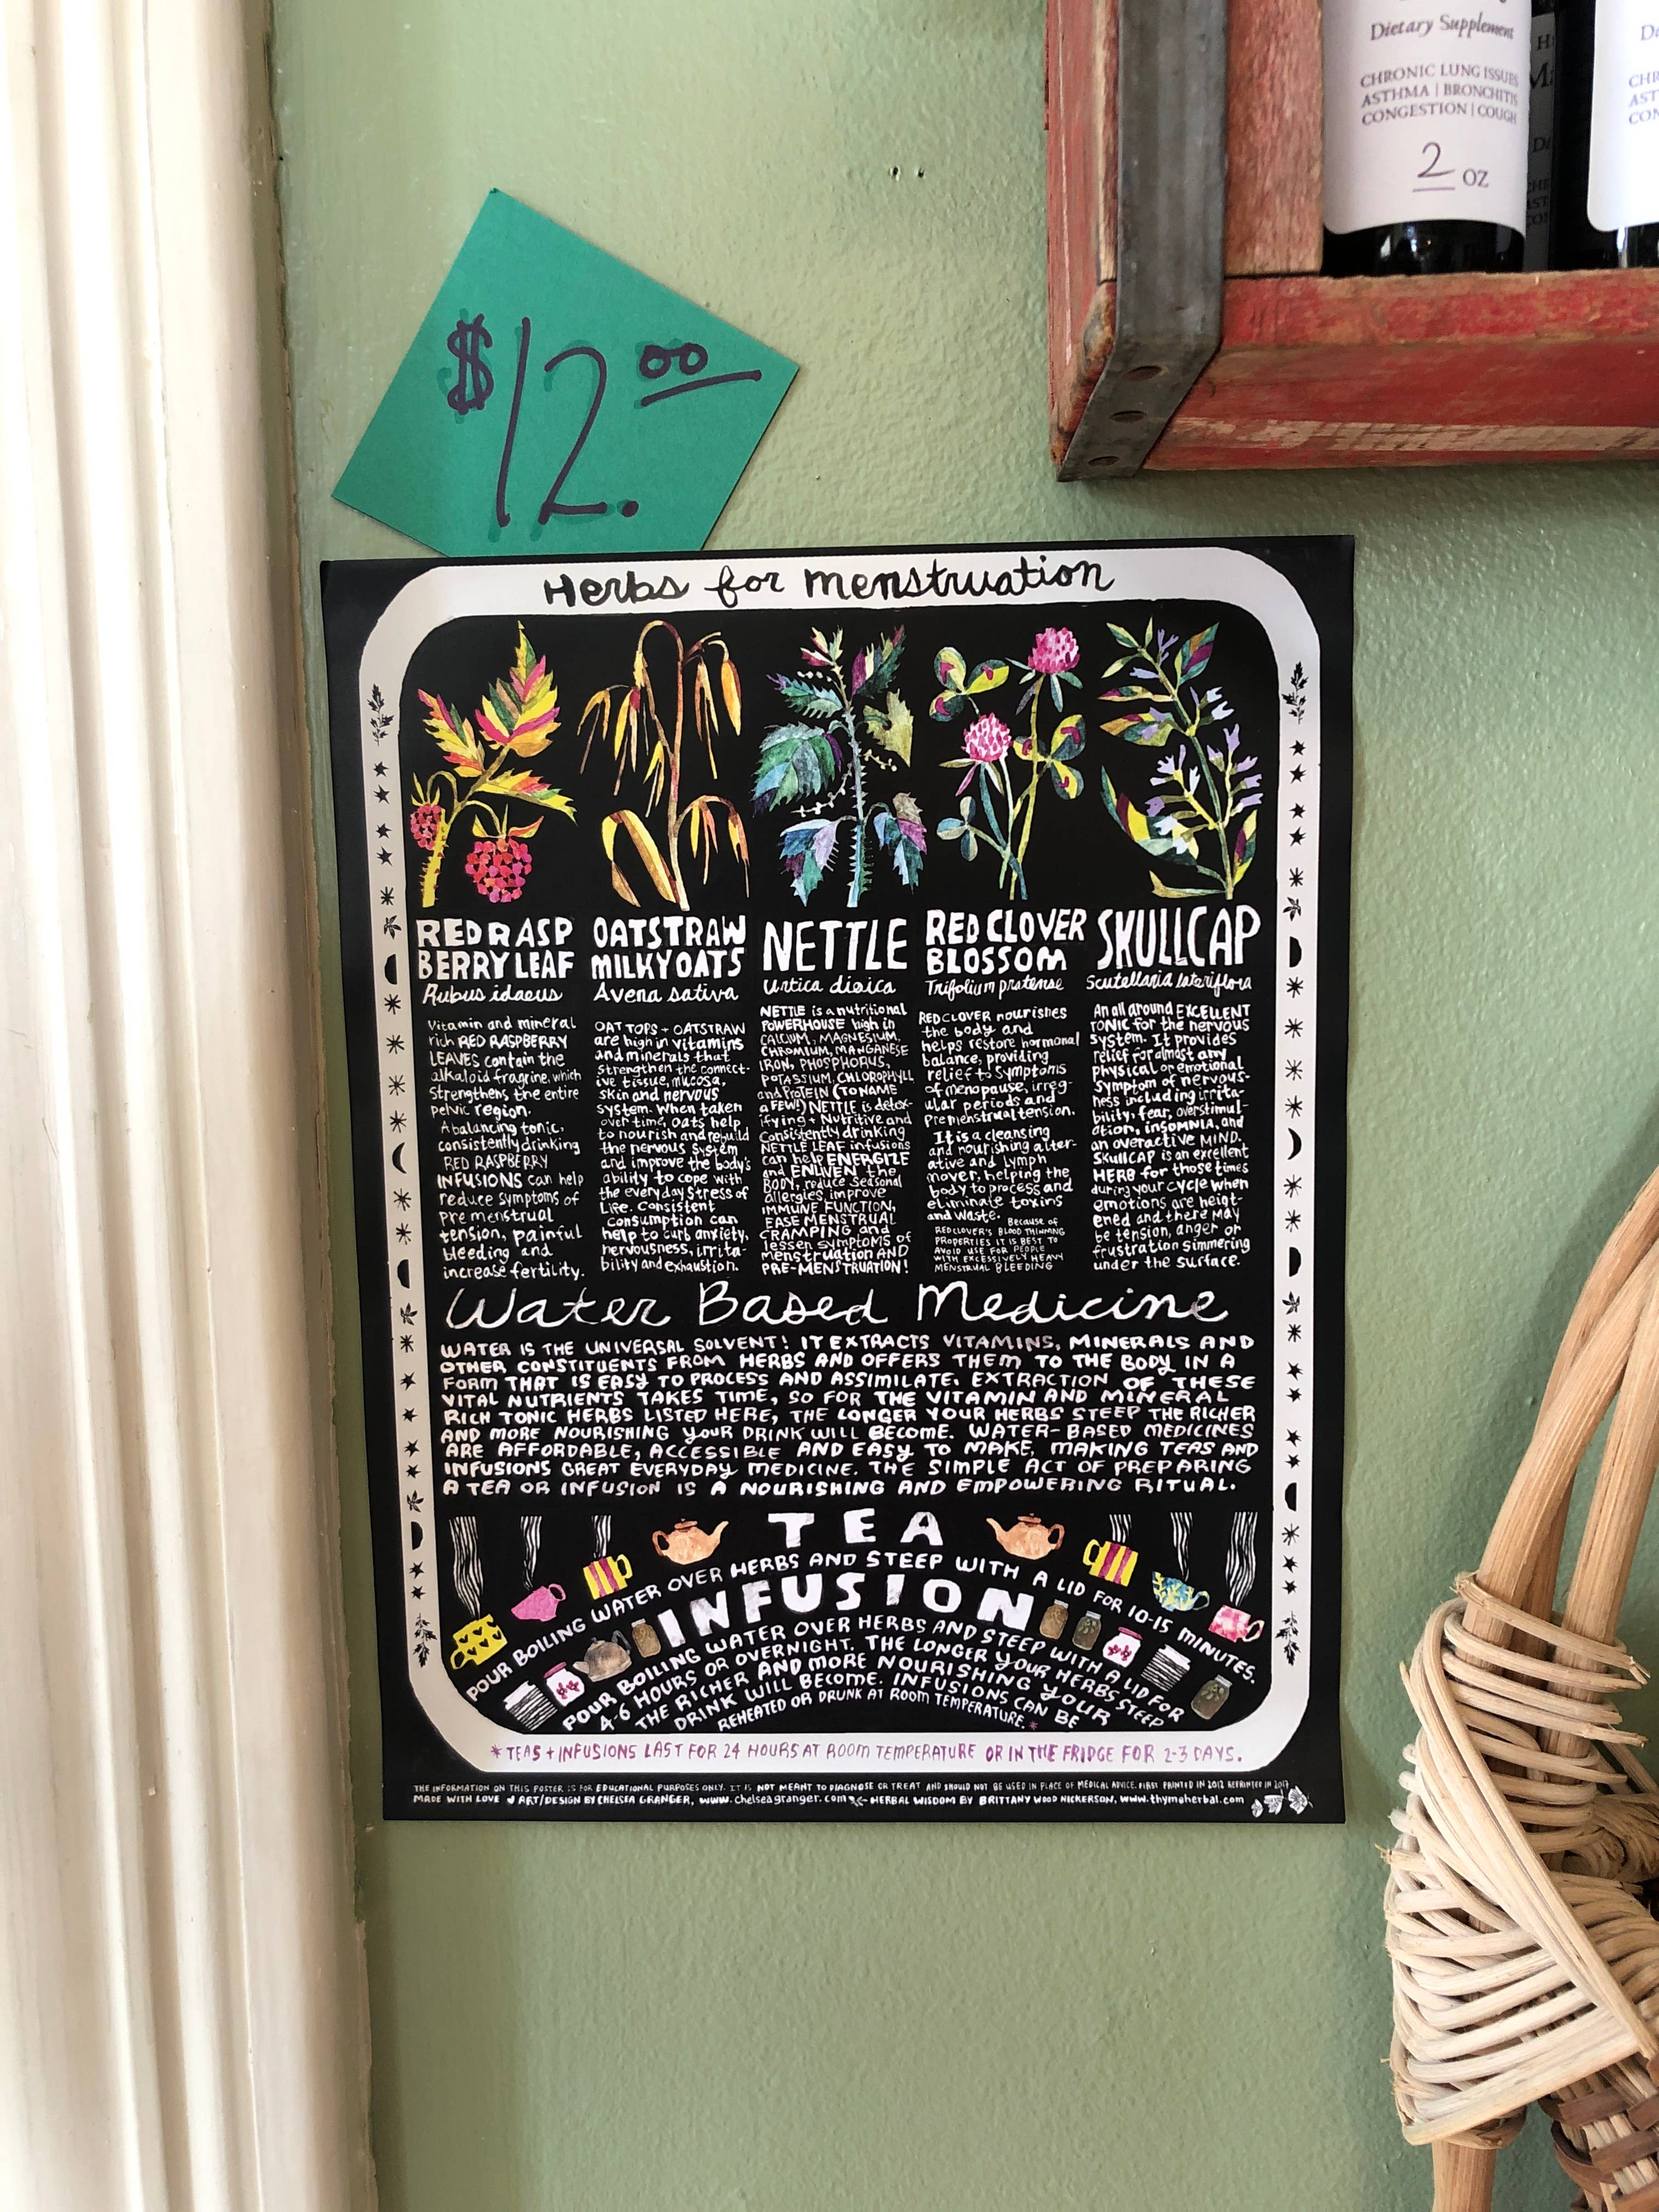 Dietary Supplement
CHRONIC LUNG ISSUES
ASTHMA | BRONCHITIS
CONGESTION | COUGH
2 OZ
$12.00
Herbs for menstruation
RED RASP
BERRY LEAF
Rubus idaeus
Vitamin and mineral
rich RED RASPBERRY
LEAVES contain the
alkaloid fragrine, which
strengthens the entire
pelvic region.
A balancing tonic,
consistently drinking
RED RASPBERRY
INFUSIONS can help
reduce symptoms of
pre menstrual
tension, painful
bleeding and
increase fertility.
OATSTRAW
MILKY OATS
Avena sativa
OAT TOPS + OATSTRAW
are high in vitamins
and minerals that
strengthen the connect-
ive tissue, mucosa,
skin and nervous
system. When taken
over time, oats help
to nourish and rebuild
the nervous system
and improve the body's
ability to cope with
the everyday stress of
Life. Consistent
consumption can
help to curb anxiety,
nervousness, irrita-
bility and exhaustion.
NETTLE
Urtica dioica
NETTLE is a nutritional
POWERHOUSE high in
CALCIUM, MAGNESIUM,
CHROMIUM, MANGANESE
IRON, PHOSPHORUS,
POTASSIUM, CHLOROPHYLL
and PROTEIN (TO NAME
a FEW!) NETTLE is detox-
ifying + Nutritive and
Consistently drinking
NETTLE LEAF infusions
can help ENERGIZE
and ENLIVEN the
BODY, reduce seasonal
allergies, improve
IMMUNE FUNCTION,
EASE MENSTRUAL
CRAMPING and
lessen symptoms of
menstruation AND
PRE-MENSTRUATION!
RED CLOVER
BLOSSOM
Trifolium pratense
RED CLOVER nourishes
the body and
helps restore hormonal
balance, providing
relief to symptoms
of menopause, irreg-
ular periods and
premenstrual tension.
It is a cleansing
and nourishing alter-
ative and lymph
mover, helping the
body to process and
eliminate toxins
and waste.
Because of
RED CLOVER'S BLOOD THINNING
PROPERTIES IT IS BEST TO
AVOID USE FOR PEOPLE
WITH EXCESSIVELY HEAVY
MENSTRUAL BLEEDING
SKULLCAP
Scutellaria lateriflora
An all around EXCELLENT
TONIC for the nervous
system. It provides
relief for almost any
physical or emotional
symptom of nervous-
ness including irrita-
bility, fear, overstimul-
ation, insomnia, and
an overactive MIND.
Skullcap is an excellent
HERB for those times
during your cycle when
emotions are height-
ened and there may
be tension, anger or
frustration simmering
under the surface.
Water Based Medicine
WATER IS THE UNIVERSAL SOLVENT! IT EXTRACTS VITAMINS, MINERALS AND
OTHER CONSTITUENTS FROM HERBS AND OFFERS THEM TO THE BODY IN A
FORM THAT IS EASY TO PROCESS AND ASSIMILATE. EXTRACTION OF THESE
VITAL NUTRIENTS TAKES TIME, SO FOR THE VITAMIN AND MINERAL
RICH TONIC HERBS LISTED HERE, THE LONGER YOUR HERBS STEEP THE RICHER
AND MORE NOURISHING YOUR DRINK WILL BECOME. WATER-BASED MEDICINES
ARE AFFORDABLE, ACCESSIBLE AND EASY TO MAKE, MAKING TEAS AND
INFUSIONS GREAT EVERYDAY MEDICINE. THE SIMPLE ACT OF PREPARING
A TEA OR INFUSION IS A NOURISHING AND EMPOWERING RITUAL.
TEA
POUR BOILING WATER OVER HERBS AND STEEP WITH A LID FOR 10-15 MINUTES.
INFUSION
POUR BOILING WATER OVER HERBS AND STEEP WITH A LID FOR
4-6 HOURS OR OVERNIGHT. THE LONGER YOUR HERBS STEEP
THE RICHER AND MORE NOURISHING YOUR
DRINK WILL BECOME. INFUSIONS CAN BE
REHEATED OR DRUNK AT ROOM TEMPERATURE.*
*TEAS + INFUSIONS LAST FOR 24 HOURS AT ROOM TEMPERATURE OR IN THE FRIDGE FOR 2-3 DAYS.
THE INFORMATION ON THIS POSTER IS FOR EDUCATIONAL PURPOSES ONLY. IT IS NOT MEANT TO DIAGNOSE OR TREAT AND SHOULD NOT BE USED IN PLACE OF MEDICAL ADVICE. FIRST PRINTED IN 2012 REPRINTED IN 2017
MADE WITH LOVE ART/DESIGN BY CHELSEA GRANGER, www.chelseagranger.com HERBAL WISDOM BY BRITTANY WOOD NICKERSON, www.thymeherbal.com